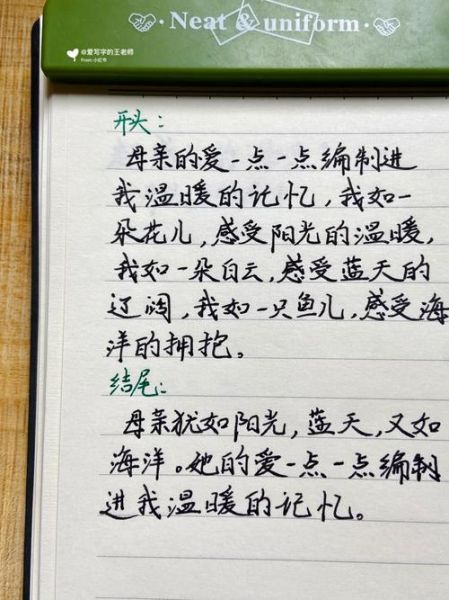 · Neat & uniform ·
@爱写字的王老师
From 小红书
开头:
母亲的爱一点一点编制进
我温暖的记忆,我如一
朵花儿,感受阳光的温暖,
我如一朵白云,感受蓝天的
辽阔,我如一只鱼儿,感受海
洋的拥抱。
结尾:
母亲犹如阳光,蓝天,又如
海洋。她的爱一点一点编制
进我温暖的记忆。